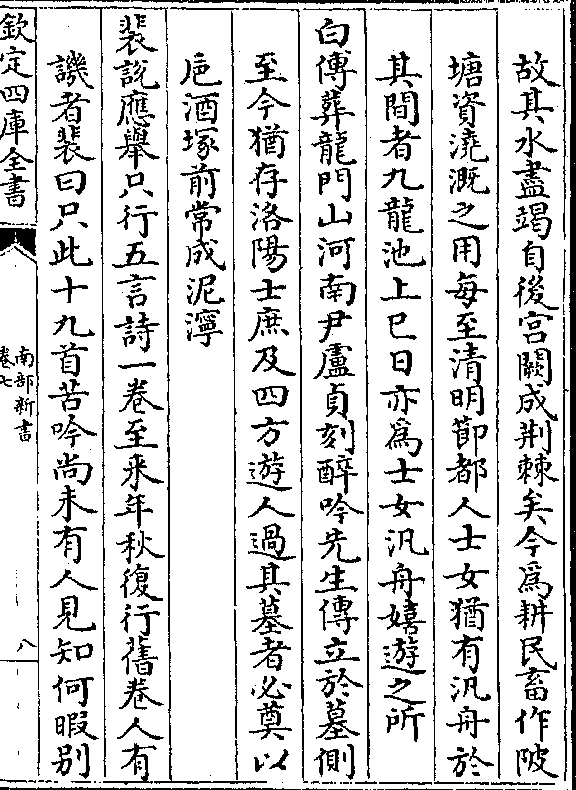 故其水盡竭自後宮闕成荆棘矣今爲耕民畜作陂
塘資澆溉之用每至清明節都人士女猶有汎舟於
其間者九龍池上巳日亦爲士女汎舟嬉遊之所
白傅葬龍門山河南尹盧貞刻醉吟先生傳立於墓側
至今猶存洛陽士庶及四方遊人過其墓者必奠以
巵酒塚前常成泥濘
裴說應舉只行五言詩一卷至來年秋復行舊卷人有
譏者裴曰只此十九首苦吟尚未有人見知何暇别
欽定四庫全書
南部新書
卷七
八